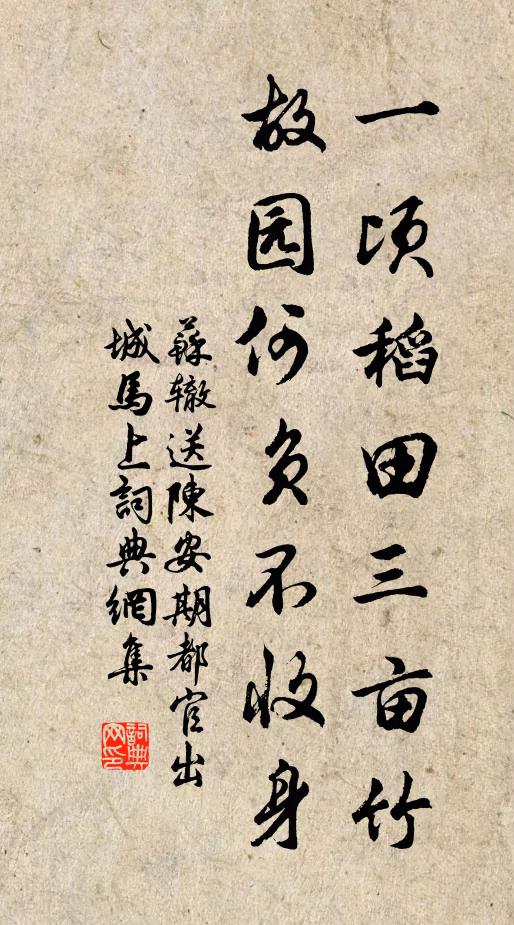 一顷稻田三亩竹
故园何负不收身
蘇辙送陳安期都官出
城馬上詞典網集
詞典
网印